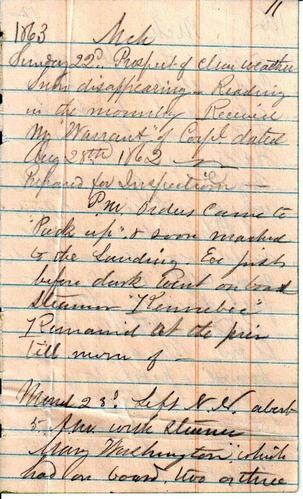 11
1863 Mch
Sunday 22d. Prospect of clear weather
Snow disappearing - Reading
in the morning Receive
my Warrant of Corpl dated
Aug 28th 1862
Prepared for Inspection -
P.M. Orders came to
"Pack up" & soon marched
to the Landing. Eve just
before dark went on board
Steamer "Kennebec"
Remained at the pier
till morn of -
Mond 23d. Left N.N. about
5 with Steamer
Mary Washington, which
had on board, two or three